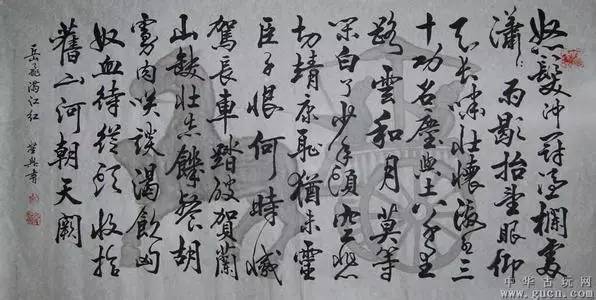 怒髮冲冠憑欄處
瀟〻雨歇抬望眼仰
天長嘯壯懷激烈三
十功名塵與土八千里
路雲和月莫等
閑白了少年頭空悲
切靖康恥猶未雪
臣子恨何時滅
駕長車踏破賀蘭
山缺壯志饑餐胡
虜肉笑談渴飲匈
奴血待從頭收拾
舊山河朝天闕
岳飛滿江红
中华古玩网
www.gucn.com